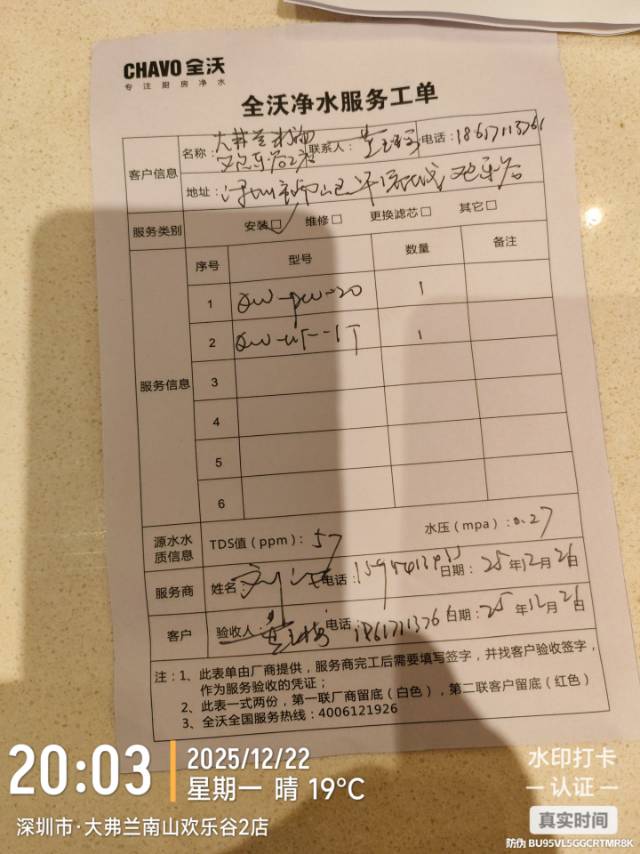 CHAVO 全沃
专注厨房净水
全沃净水服务工单
客户信息
名称：大弗兰 欢乐谷2店 联系人： 电话：1861711376
地址：深圳市南山区华侨城欢乐谷
服务类别 安装□ 维修□ 更换滤芯□ 其它□
服务信息
序号 型号 数量 备注
1 QW-PW-20 1
2 QW-UF-1T 1
3
4
5
6
源水水质信息 TDS值（ppm）：57 水压（mpa）：0.27
服务商 姓名： 电话： 日期：25年12月26
客户 验收人： 电话：1861711376 日期：25年12月26
注：1、此表单由厂商提供，服务商完工后需要填写签字，并找客户验收签字，
作为服务验收的凭证；
2、此表一式两份，第一联厂商留底（白色），第二联客户留底（红色）
3、全沃全国服务热线：4006121926
20:03
2025/12/22
星期一 晴 19°C
深圳市·大弗兰南山欢乐谷2店
水印打卡
认证
真实时间
防伪 BU95VL5GGCRTMR8K